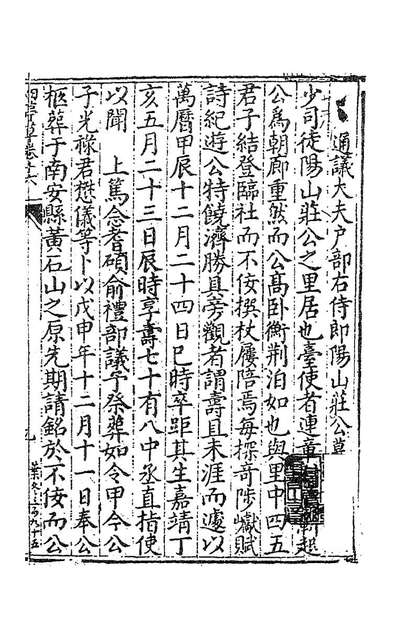 通議大夫戶部右侍郎陽山莊公墓
少司徒陽山莊公之里居也臺使者連章
公為朝廊重然而公高卧衡荊泊如也與里中四五
君子結登臨社而不佞撰杖屨陪焉每探奇陟巘賦
詩紀遊公特饒濟勝具旁觀者謂壽且未涯而遽以
萬曆甲辰十二月二十四日巳時卒距其生嘉靖丁
亥五月二十三日辰時享壽七十有八中丞直指使
以聞　上篤念耆碩俞禮部議予祭葬如令甲今公
子光祿君懋儀等卜以戊申年十二月十一日奉公
柩葬于南安縣黃石山之原先期請銘於不佞而公